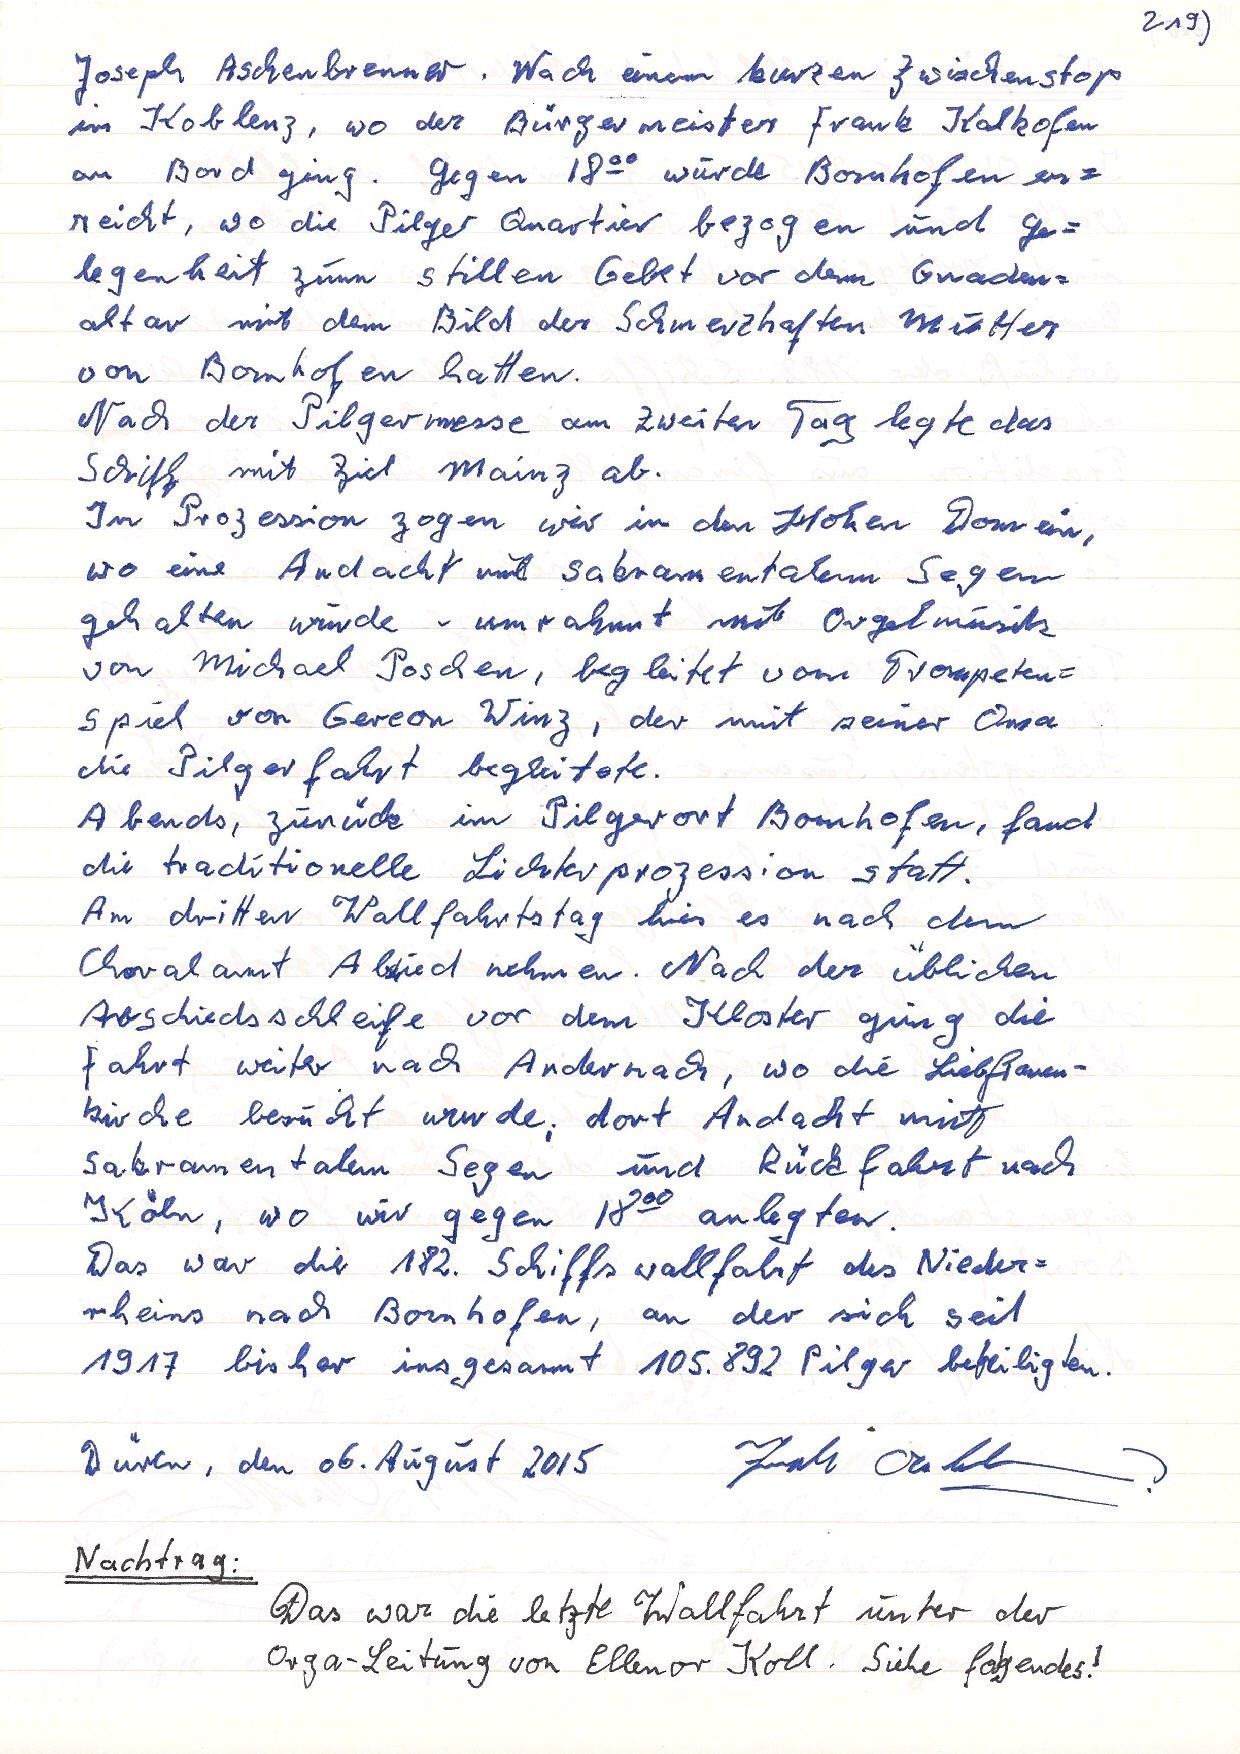 219)
Joseph Aschenbrenner. Nach einem kurzen Zwischenstop
in Koblenz, wo der Bürgermeister Frank Kalkofen
an Bord ging. Gegen 18⁰⁰ wurde Bornhofen er=
reicht, wo die Pilger Quartier bezogen und Ge=
legenheit zum stillen Gebet vor dem Gnaden=
altar mit dem Bild der Schmerzhaften Mutter
von Bornhofen hatten.
Nach der Pilgermesse am zweiten Tag legte das
Schiff mit Ziel Mainz ab.
In Prozession zogen wir in den Hohen Dom ein,
wo eine Andacht mit sakramentalem Segen
gehalten wurde - umrahmt mit Orgelmusik
von Michael Poschen, begleitet vom Trompeten=
spiel von Gereon Winz, der mit seiner Oma
die Pilgerfahrt begleitete.
Abends, zurück im Pilgerort Bornhofen, fand
die traditionelle Lichterprozession statt.
Am dritten Wallfahrtstag hies es nach dem
Choralamt Abschied nehmen. Nach der üblichen
Abschiedsschleife vor dem Kloster ging die
Fahrt weiter nach Andernach, wo die Liebfrauen-
kirche besucht wurde; dort Andacht mit
sakramentalem Segen und Rückfahrt nach
Köln, wo wir gegen 18⁰⁰ anlegten.
Das war die 182. Schiffswallfahrt des Nieder=
rheins nach Bornhofen, an der sich seit
1917 bisher insgesamt 105.892 Pilger beteiligten.
Düren, den 06. August 2015
Nachtrag:
Das war die letzte Wallfahrt unter der
Orga-Leitung von Ellenor Koll. Siehe folgendes!